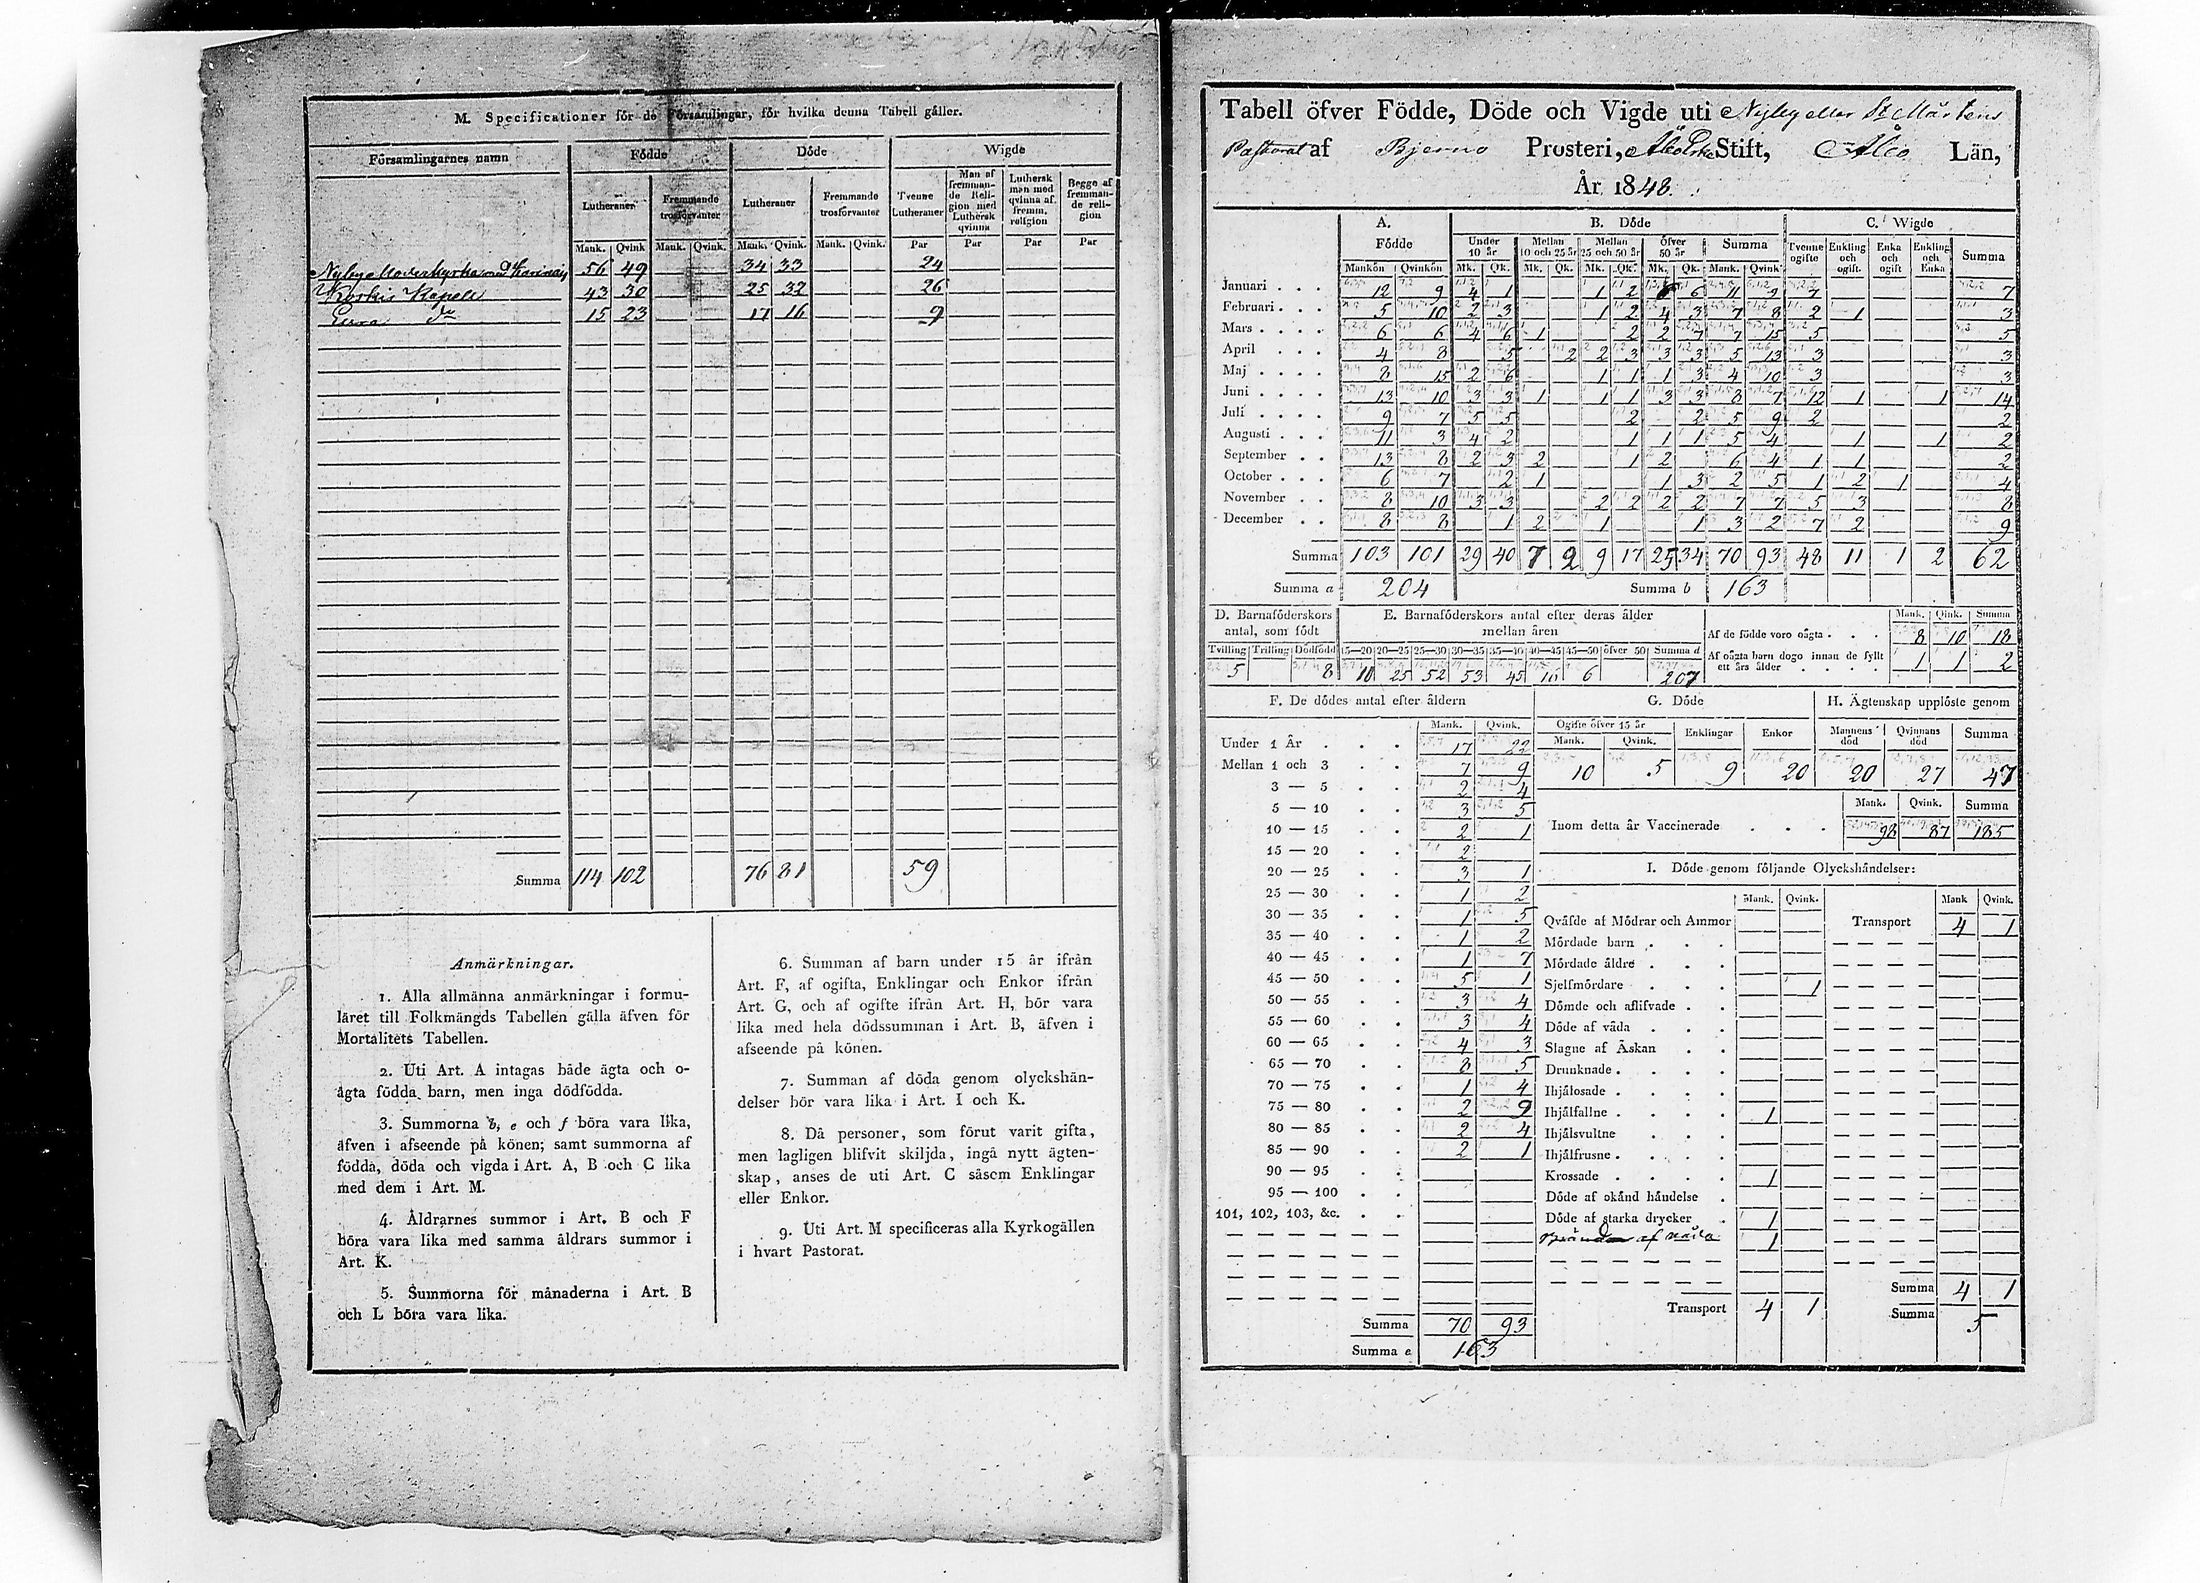 M. Specificationer för de Församlingar, för hvilka denna Tabell gäller.
Församlingarnes namn Födde Döde Wigde
Lutheraner Fremmande trosförvanter Lutheraner Fremmande trosförvanter Tvenne Lutheraner Man af fremmande Religion med Luthersk qvinna Luthersk man med qvinna af fremm. religion Begge af fremmande religion
Mank. Qvink Mank. Qvink. Mank. Qvink. Mank. Qvink. Par Par Par Par
Nyby Moderkyrka med 56 49 34 33 24
Koskis Kapell 43 30 25 32 26
do 15 23 17 16 9
Summa 114 102 76 81 59
Anmärkningar.
1. Alla allmänna anmärkningar i formu-
läret till Folkmängds Tabellen gälla äfven för
Mortalitets Tabellen.
2. Uti Art. A intagas både ägta och o-
ägta födda barn, men inga dödfödda.
3. Summorna b, e och f böra vara lika,
äfven i afseende på könen; samt summorna af
födda, döda och vigda i Art. A, B och C lika
med dem i Art. M.
4. Åldrarnes summor i Art. B och F
böra vara lika med samma åldrars summor i
Art. K.
5. Summorna för månaderna i Art. B
och L böra vara lika.
6. Summan af barn under 15 år ifrån
Art. F, af ogifta, Enklingar och Enkor ifrån
Art. G, och af ogifte ifrån Art. H, bör vara
lika med hela dödssumman i Art. B, äfven i
afseende på könen.
7. Summan af döda genom olyckshän-
delser bör vara lika i Art. I och K.
8. Då personer, som förut varit gifta,
men lagligen blifvit skiljda, ingå nytt ägten-
skap, anses de uti Art. C såsom Enklingar
eller Enkor.
9. Uti Art. M specificeras alla Kyrkogällen
i hvart Pastorat.
Tabell öfver Födde, Döde och Vigde uti Nyby eller St Mårtens
Pastorat af Bjerno Prosteri, Åbo Stift, Åbo Län,
År 1848.
A. Födde B. Döde C. Wigde
Under 10 år Mellan 10 och 25 år Mellan 25 och 50 år Öfver 50 år Summa Tvenne ogifte Enkling och ogift. Enka och ogift Enkling och Enka Summa
Mankön Qvinkön Mk. Qk. Mk. Qk. Mk. Qk. Mk. Qk. Mank. Qvink.
Januari 12 9 4 1 1 2 6 6 11 9 7 7
Februari 5 10 2 3 1 2 4 3 7 8 2 1 3
Mars 6 6 4 6 1 2 2 7 7 15 5 5
April 4 8 5 2 2 3 3 3 5 13 3 3
Maj 8 15 2 6 1 1 1 3 4 10 3 3
Juni 13 10 3 3 1 1 1 3 3 8 7 12 1 1 14
Juli 9 7 5 5 2 2 5 9 2 2
Augusti 11 3 4 2 1 1 1 5 4 1 1 2
September 13 8 2 3 2 1 2 6 4 1 1 2
October 6 7 2 1 1 3 2 5 1 2 1 4
November 8 10 3 3 2 2 2 2 7 7 5 3 8
December 8 8 1 2 1 1 3 2 7 2 9
Summa 103 101 29 40 7 2 9 17 25 34 70 93 48 11 1 2 62
Summa a 204 Summa b 163
D. Barnaföderskors antal, som födt
Tvilling Trilling Dödfödd
5 8
E. Barnaföderskors antal efter deras ålder mellan åren
15—20 20—25 25—30 30—35 35—40 40—45 45—50 öfver 50 Summa d
10 25 52 53 45 16 6 207
Mank. Qink. Summa
Af de födde voro oägta 8 10 18
Af oägta barn dogo innan de fyllt ett års ålder 1 1 2
F. De dödes antal efter åldern
Mank. Qvink.
Under 1 År 17 22
Mellan 1 och 3 7 9
3 — 5 2 4
5 — 10 3 5
10 — 15 2 1
15 — 20 2
20 — 25 3 1
25 — 30 1 2
30 — 35 1 5
35 — 40 1 2
40 — 45 1 7
45 — 50 5 1
50 — 55 3 4
55 — 60 3 4
60 — 65 4 3
65 — 70 8 5
70 — 75 1 4
75 — 80 2 9
80 — 85 2 4
85 — 90 2 1
90 — 95
95 — 100
101, 102, 103, &c.
Summa 70 93
Summa e 163
G. Döde
Ogifte öfver 15 år Enklingar Enkor
Mank. Qvink.
10 5 9 20
H. Ägtenskap upplöste genom
Mannens död Qvinnans död Summa
20 27 47
Mank. Qvink. Summa
Inom detta år Vaccinerade 98 87 185
I. Döde genom följande Olyckshändelser:
Mank. Qvink. Mank Qvink.
Qväfde af Mödrar och Ammor Transport 4 1
Mördade barn
Mördade äldre
Sjelfmördare 1
Dömde och aflifvade
Döde af våda
Slagne af Åskan
Drunknade
Ihjälosade
Ihjälfallne 1
Ihjälsvultne
Ihjälfrusne
Krossade 1
Döde af okänd händelse
Döde af starka drycker 1
af våda 1
Transport 4 1
Summa 4 1
Summa 5